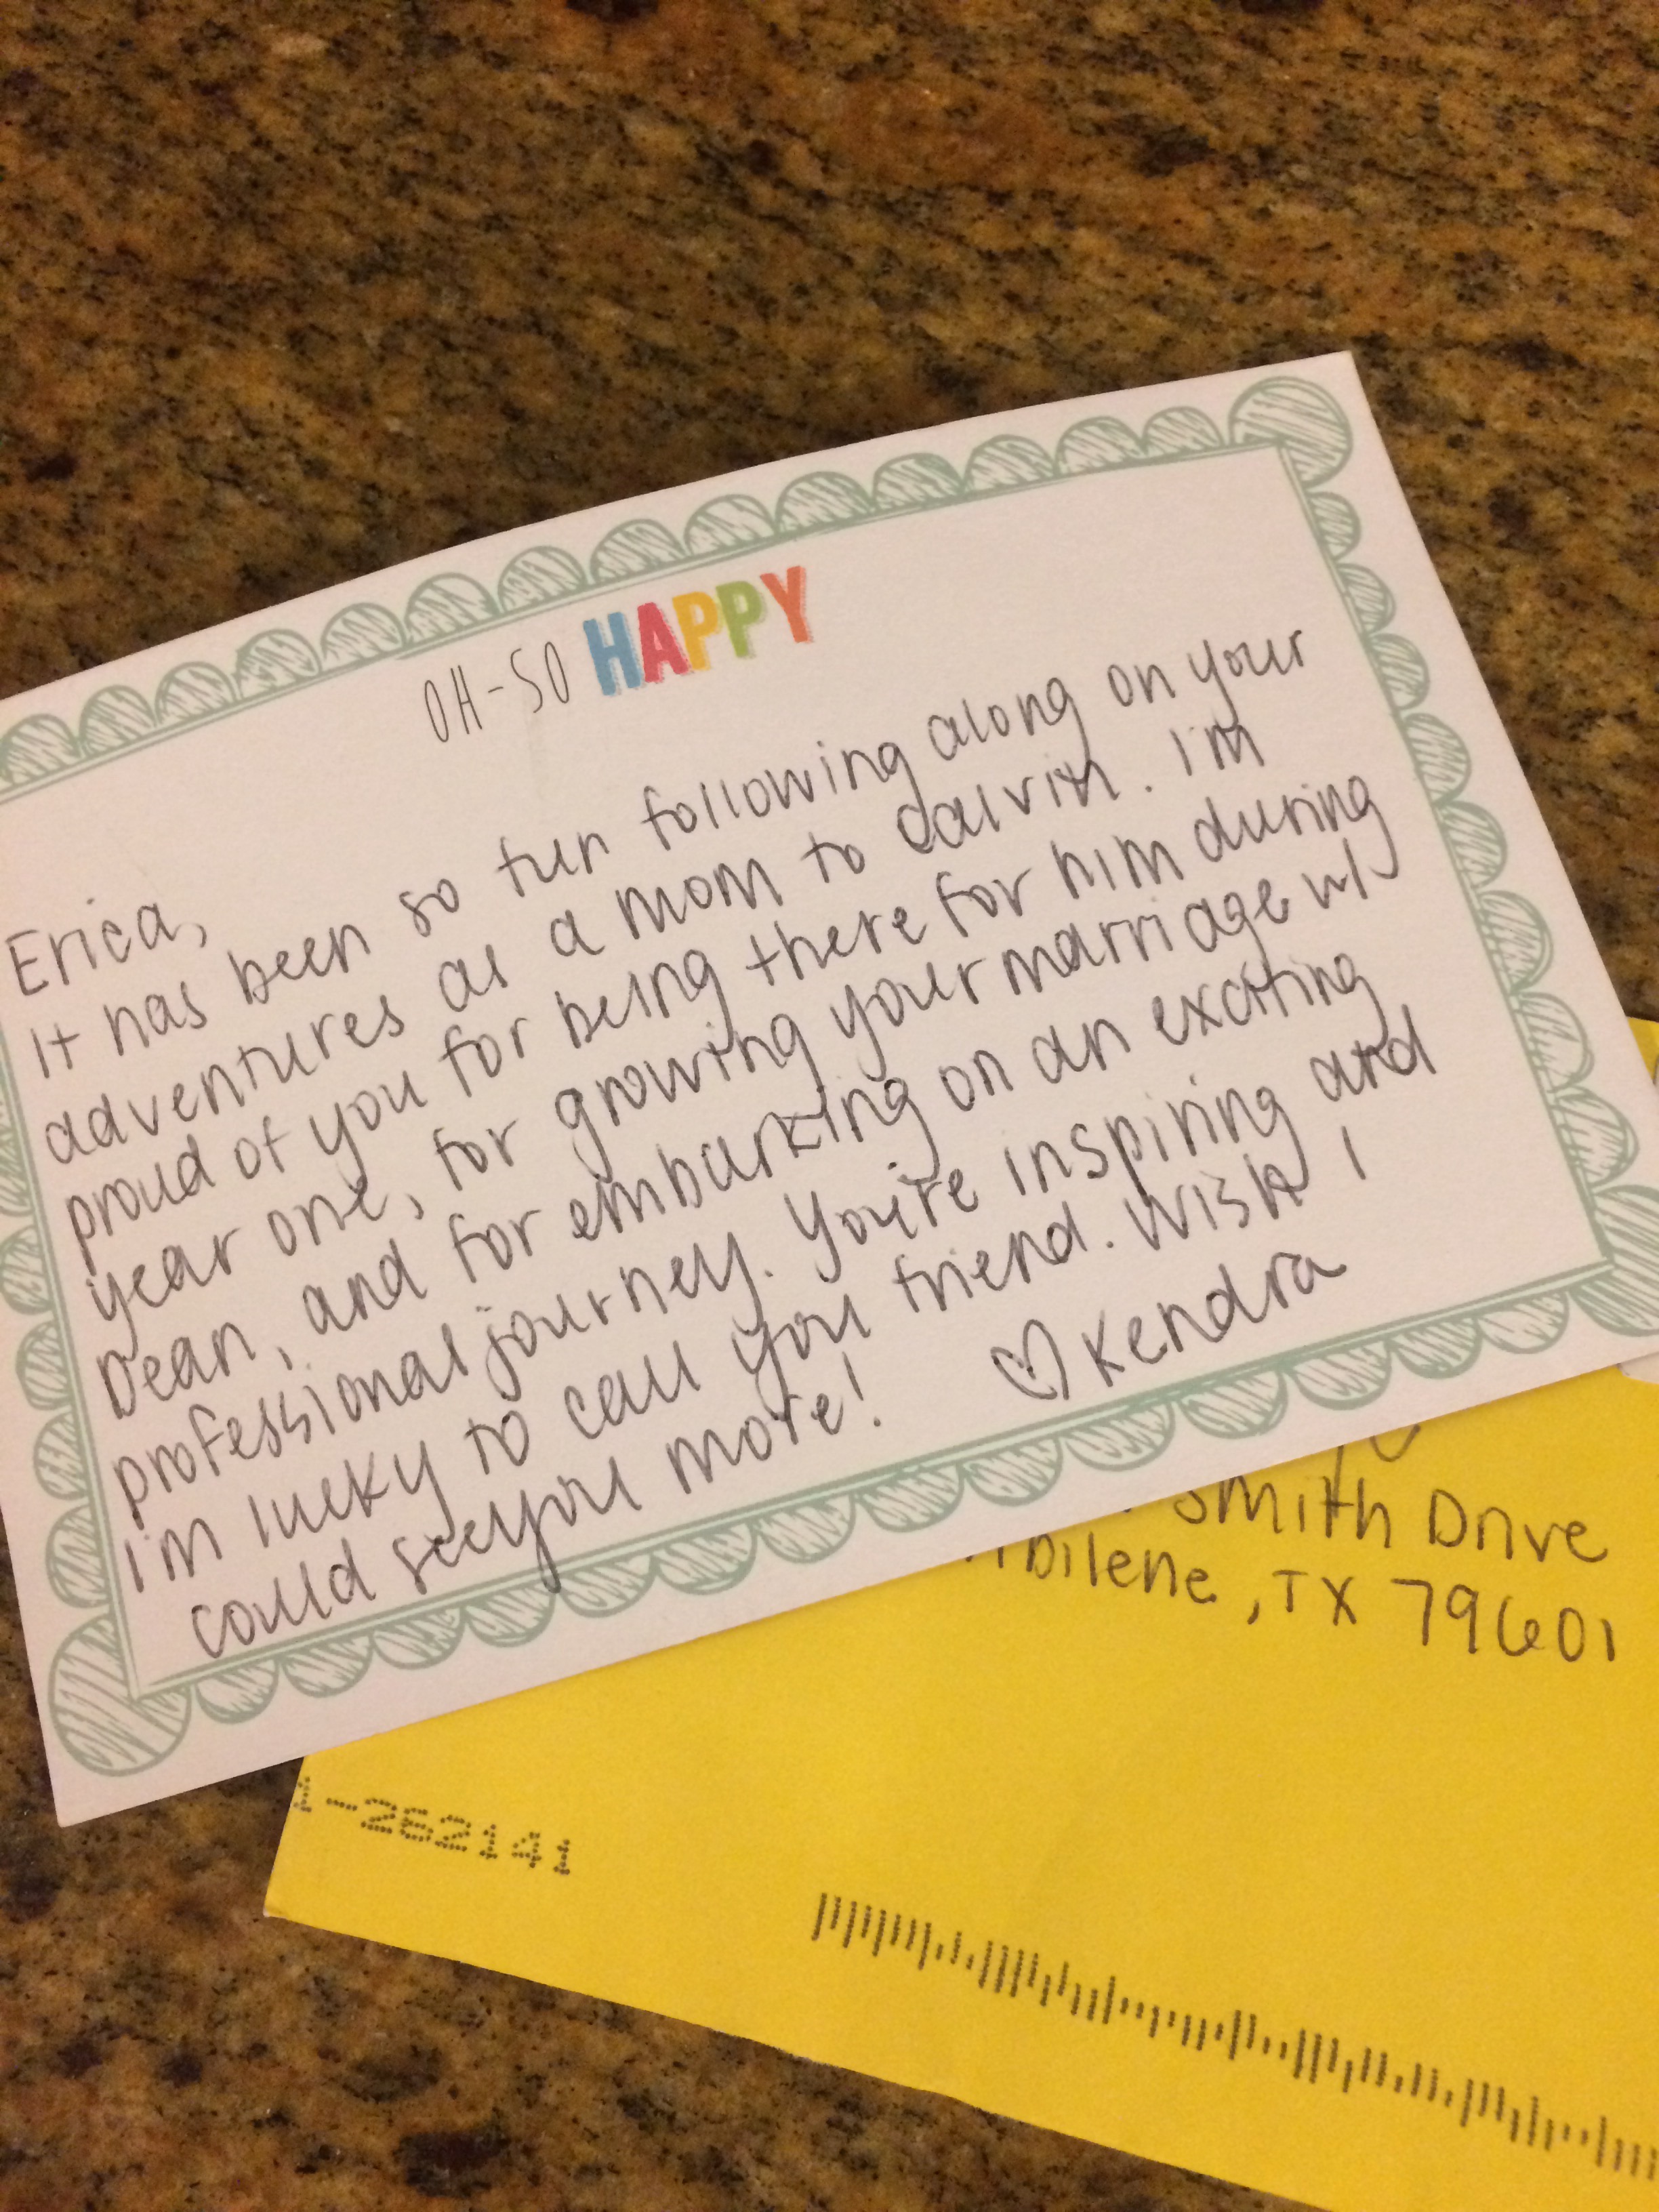 OH-SO HAPPY
Erica,
It has been so fun following along on your
adventures as a mom to Calvin. I'm
proud of you for being there for him during
year one, for growing your marriage w/
Dean, and for embarking on an exciting
professional journey. You're inspiring and
I'm lucky to call you friend. Wish I
could see you more!
♡ Kendra
Smith Drive
bilene, TX 79601
1-262141